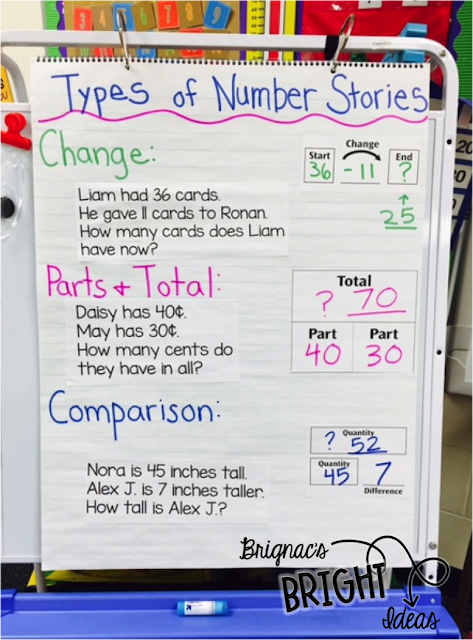 Types of Number Stories
Change:
Change
Start
End
36
-11
?
25
Liam had 36 cards.
He gave 11 cards to Ronan.
How many cards does Liam
have now?
Parts + Total:
Total
? 70
Part
Part
40
30
Daisy has 40¢.
May has 30¢.
How many cents do
they have in all?
Comparison:
Quantity
? 52
Quantity
45
7
Difference
Nora is 45 inches tall.
Alex J. is 7 inches taller.
How tall is Alex J.?
Brignac's
BRIGHT
Ideas